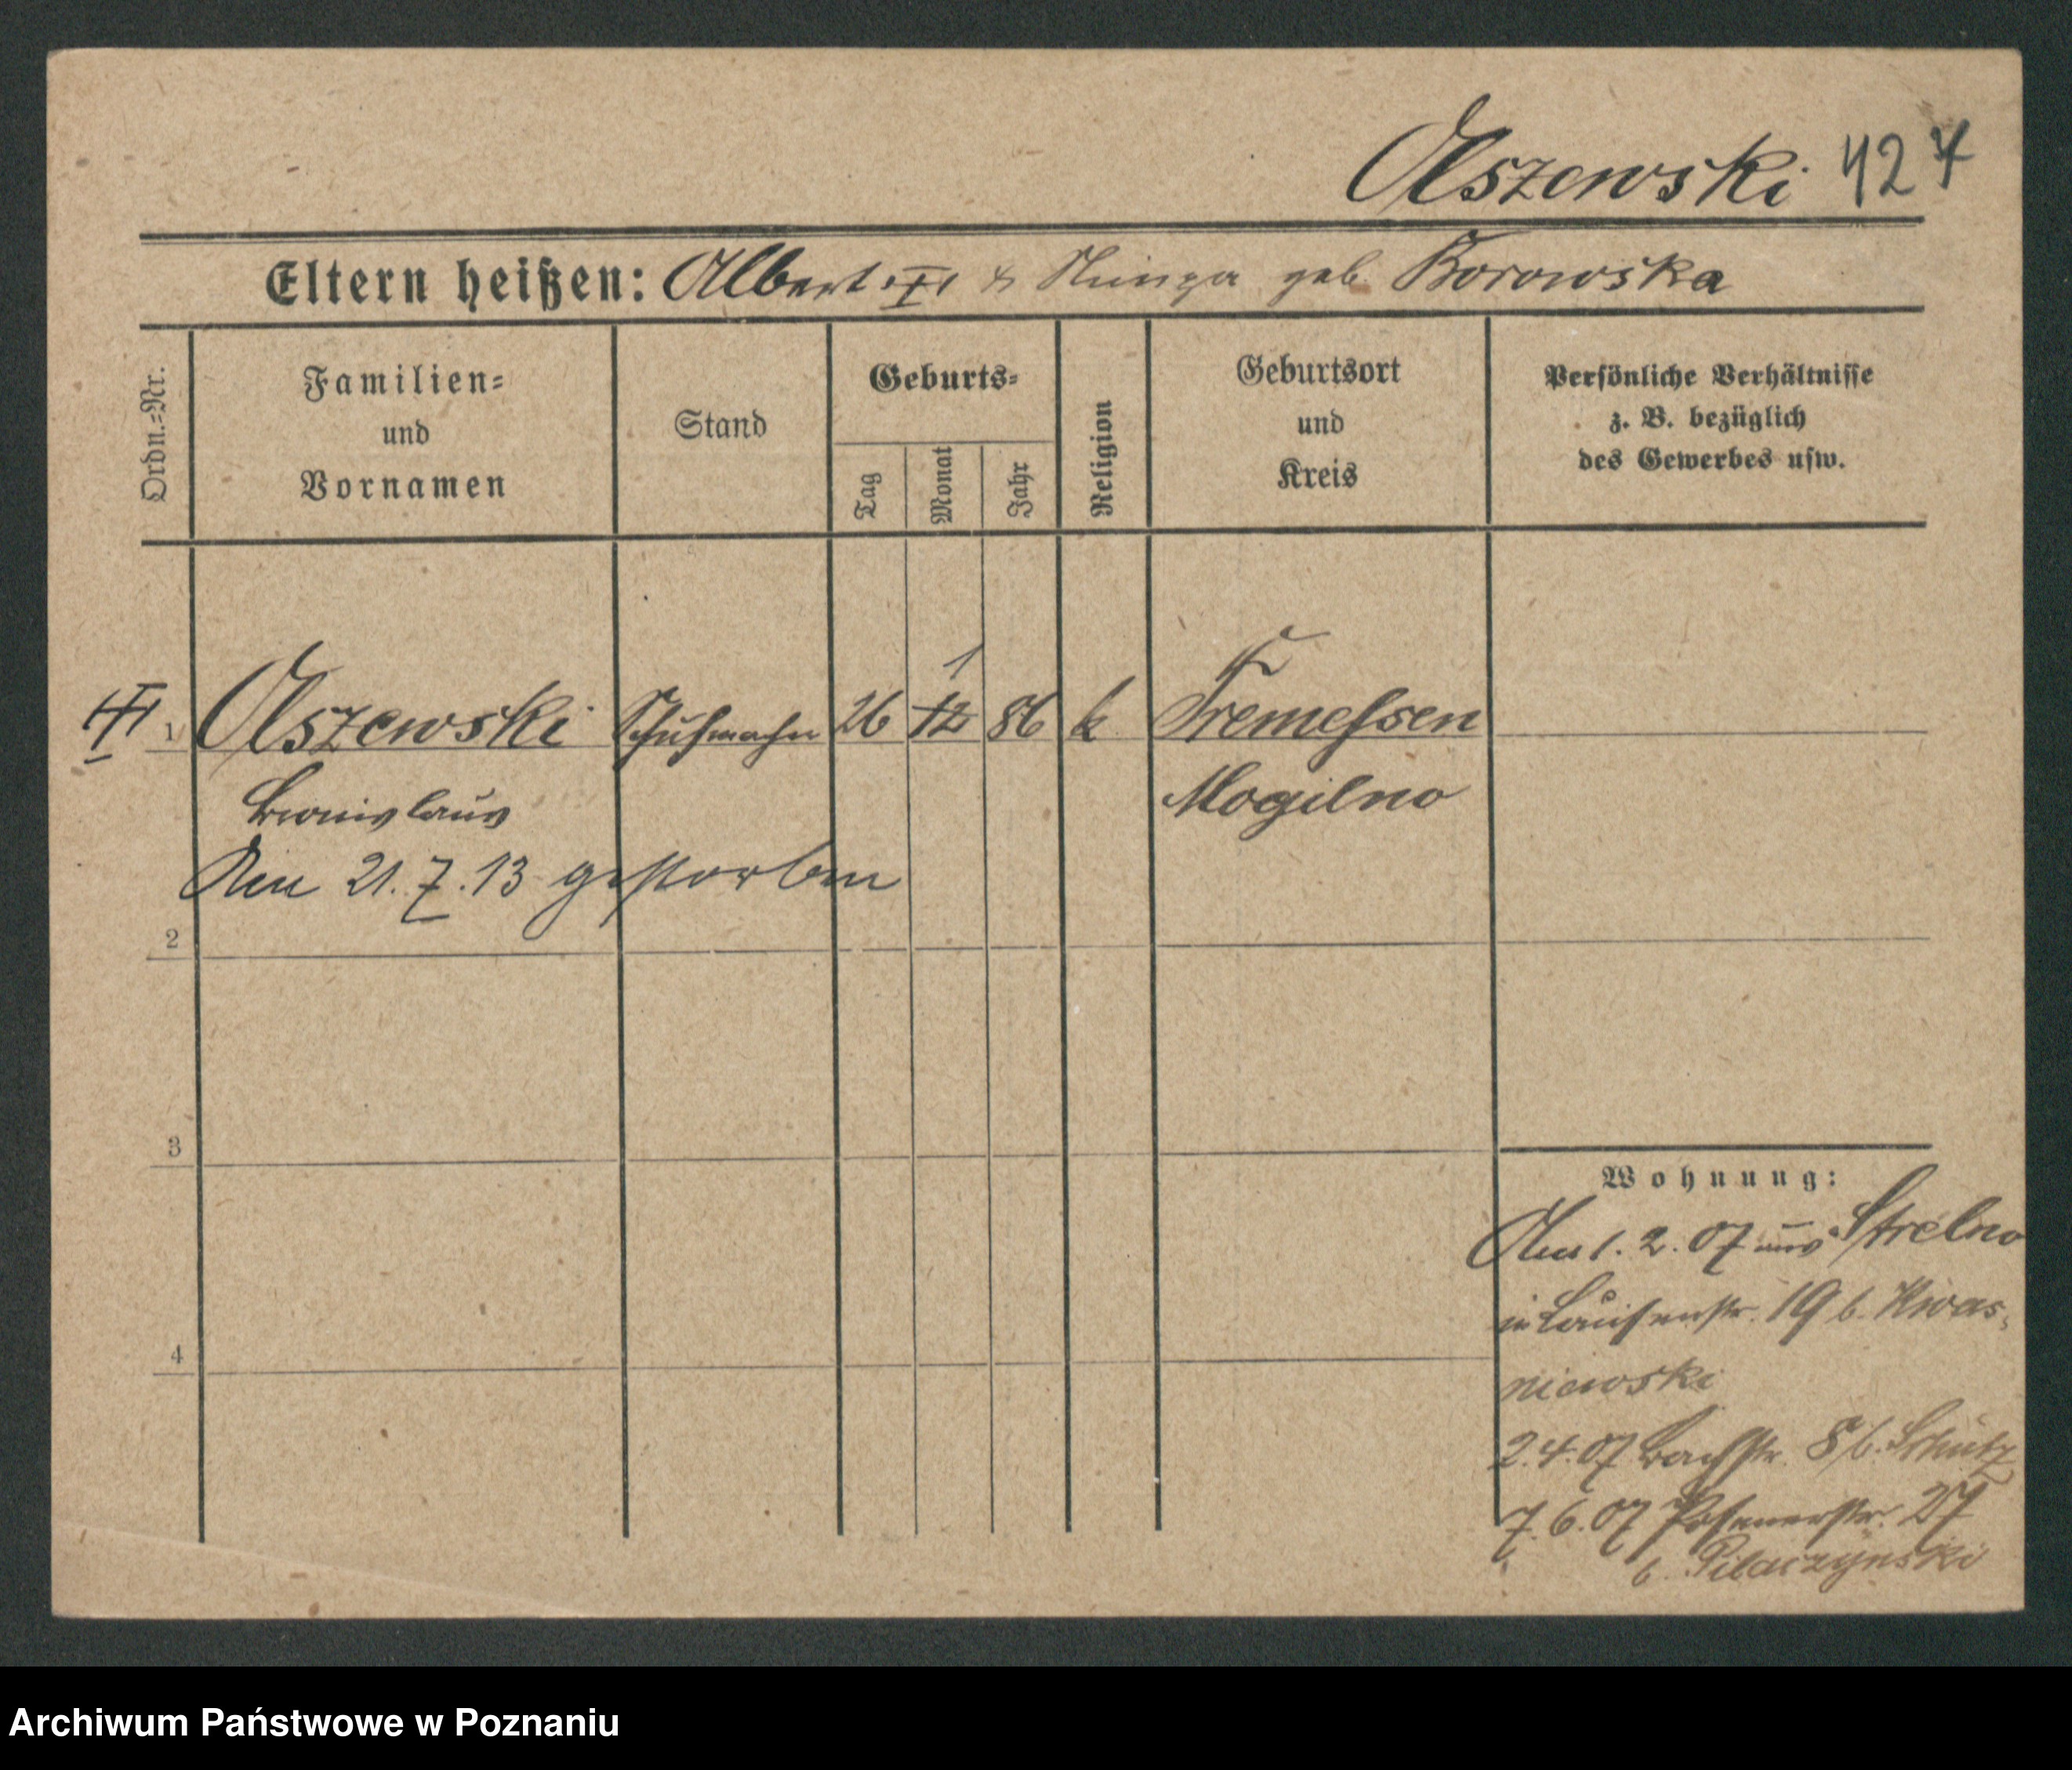 Olszewski 427
Eltern heißen: Albert & geb. Borowska
Ordn.=Nr.
Familien=
und
Vornamen
Stand
Geburts=
Tag
Monat
Jahr
Religion
Geburtsort
und
Kreis
Persönliche Verhältnisse
z. B. bezüglich
des Gewerbes usw.
1
1 Olszewski Schuhmacher 26 12 86 k. Tremessen
Bronislaus Mogilno
Am 21.7.13 gestorben
2
3
4
Wohnung:
Am 1.2.07 aus Strelno
in Louisenstr. 19 b. Kwas-
niewski
2.4.07 Bachstr. 8 b. Schütz
7.6.07 Posenerstr. 27
b. Pilaczynski
Archiwum Państwowe w Poznaniu